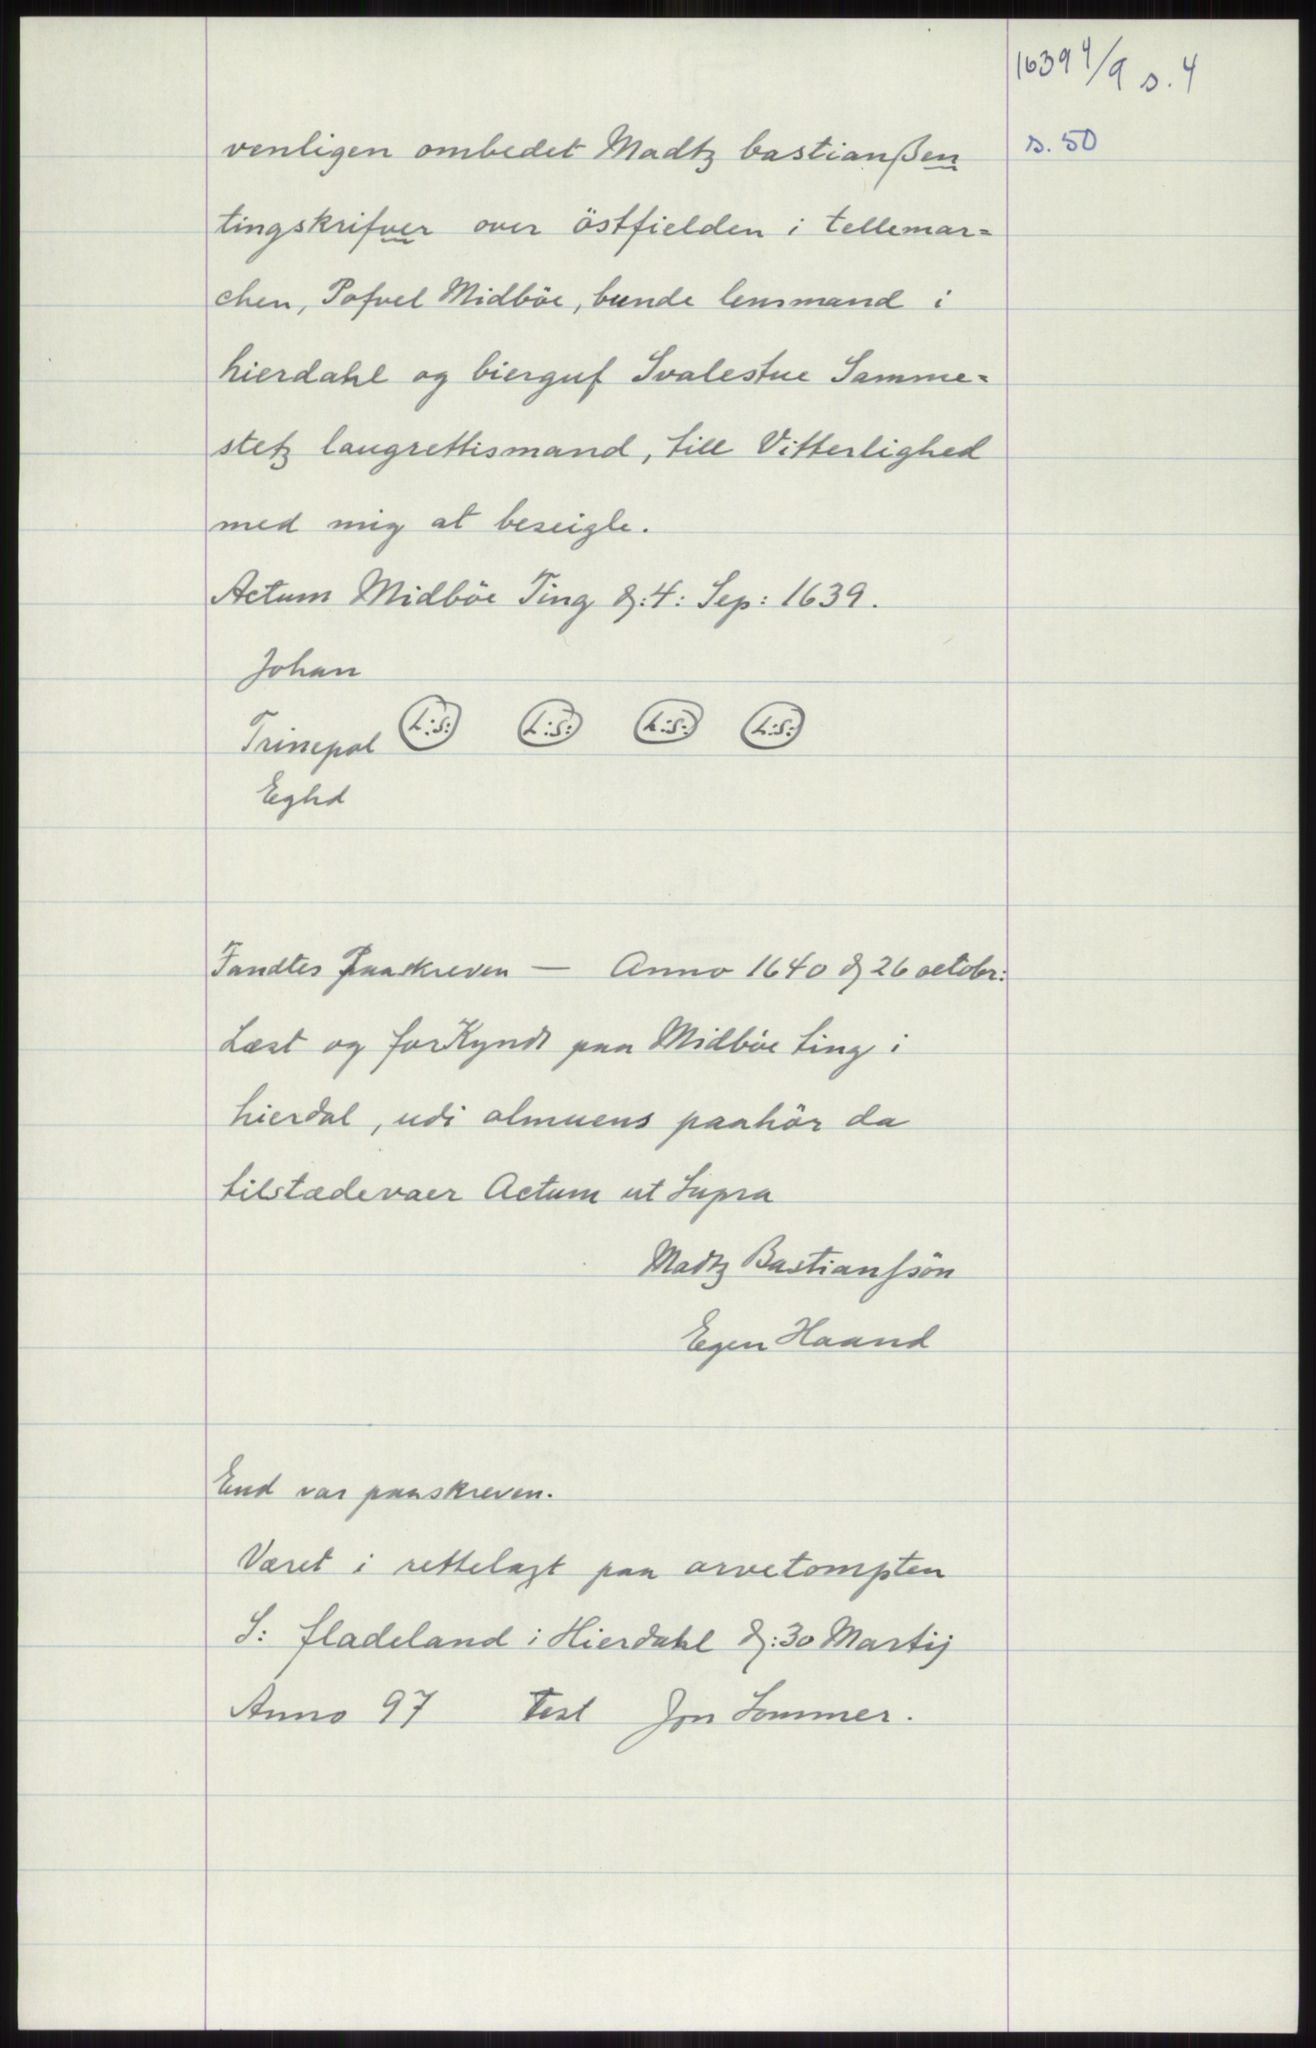 1639 4/9 s. 4
s. 50
venligen ombedet Madtz bastianßen
tingskrifver over östfielden i tellemar=
chen, Pofvel Midböe, bunde lensmand i
hierdahl og bierguf Svalestue Samme=
stetz laugrettismand, till Vitterlighed
med mig at beseigle.
Actum Midböe Ting d:4: Sep: 1639.
Johan
Trinepol L:S: L:S: L:S: L:S:
Eghd
Fandtes Paaskreven — Anno 1640 d 26 octobr:
Læst og forKyndt paa Midböe ting i
hierdal, udi almuens paahör da
tilstædevaer Actum ut Supra
Madtz Bastianssön
Egen Haand
End var paaskreven.
Været i rettelagt paa arvetompten
S: fladeland i Hierdahl d:30 Martij
Anno 97 Test Jon Sommer.